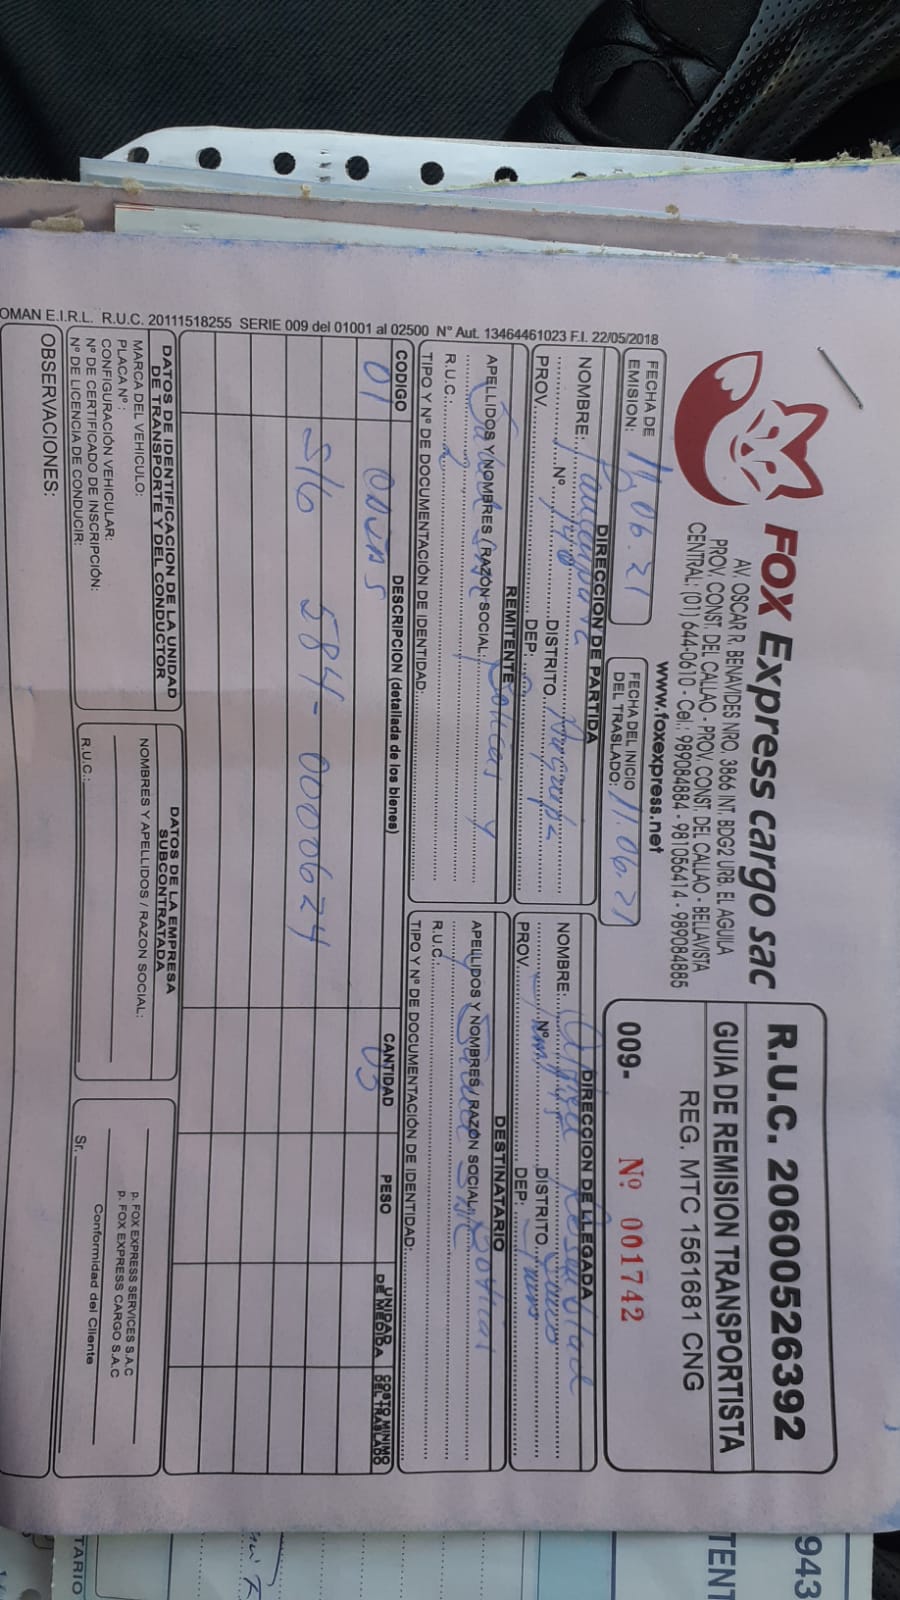 FOX Express cargo sac
AV. OSCAR R. BENAVIDES NRO. 3866 INT. BDG2 URB. EL AGUILA
PROV. CONST. DEL CALLAO - PROV. CONST. DEL CALLAO - BELLAVISTA
CENTRAL: (01) 644-0610 - Cel.: 989084884 - 981056414 - 989084885
www.foxexpress.net
R.U.C. 20600526392
GUIA DE REMISION TRANSPORTISTA
REG. MTC 1561681 CNG
009- Nº 001742
FECHA DE EMISION: 11.06.21
FECHA DEL INICIO DEL TRASLADO: 11.06.21
DIRECCION DE PARTIDA
NOMBRE:
Nº DISTRITO Arequipa
PROV. DEP:
DIRECCION DE LLEGADA
NOMBRE:
Nº DISTRITO
PROV. DEP:
REMITENTE
APELLIDOS Y NOMBRES / RAZÓN SOCIAL: Boticas y
R.U.C.
TIPO Y Nº DE DOCUMENTACIÓN DE IDENTIDAD:
DESTINATARIO
APELLIDOS Y NOMBRES / RAZÓN SOCIAL: Boticas
R.U.C.:
TIPO Y Nº DE DOCUMENTACIÓN DE IDENTIDAD:
CODIGO DESCRIPCION (detallada de los bienes) CANTIDAD PESO UNIDAD DE MEDIDA COSTO MINIMO DEL TRASLADO
01 CAJAS 03
S/G 584-0000624
DATOS DE IDENTIFICACION DE LA UNIDAD
DE TRANSPORTE Y DEL CONDUCTOR
MARCA DEL VEHICULO:
PLACA Nº :
CONFIGURACIÓN VEHICULAR:
Nº DE CERTIFICADO DE INSCRIPCIÓN:
Nº DE LICENCIA DE CONDUCIR:
DATOS DE LA EMPRESA
SUBCONTRATADA
NOMBRES Y APELLIDOS / RAZON SOCIAL:
R.U.C.:
p. FOX EXPRESS SERVICES S.A.C
p. FOX EXPRESS CARGO S.A.C
Conformidad del Cliente
Sr.
OBSERVACIONES:
OMAN E.I.R.L. R.U.C. 20111518255 SERIE 009 del 01001 al 02500 Nº Aut. 13464461023 F.I. 22/05/2018
943
TENT
TARIO